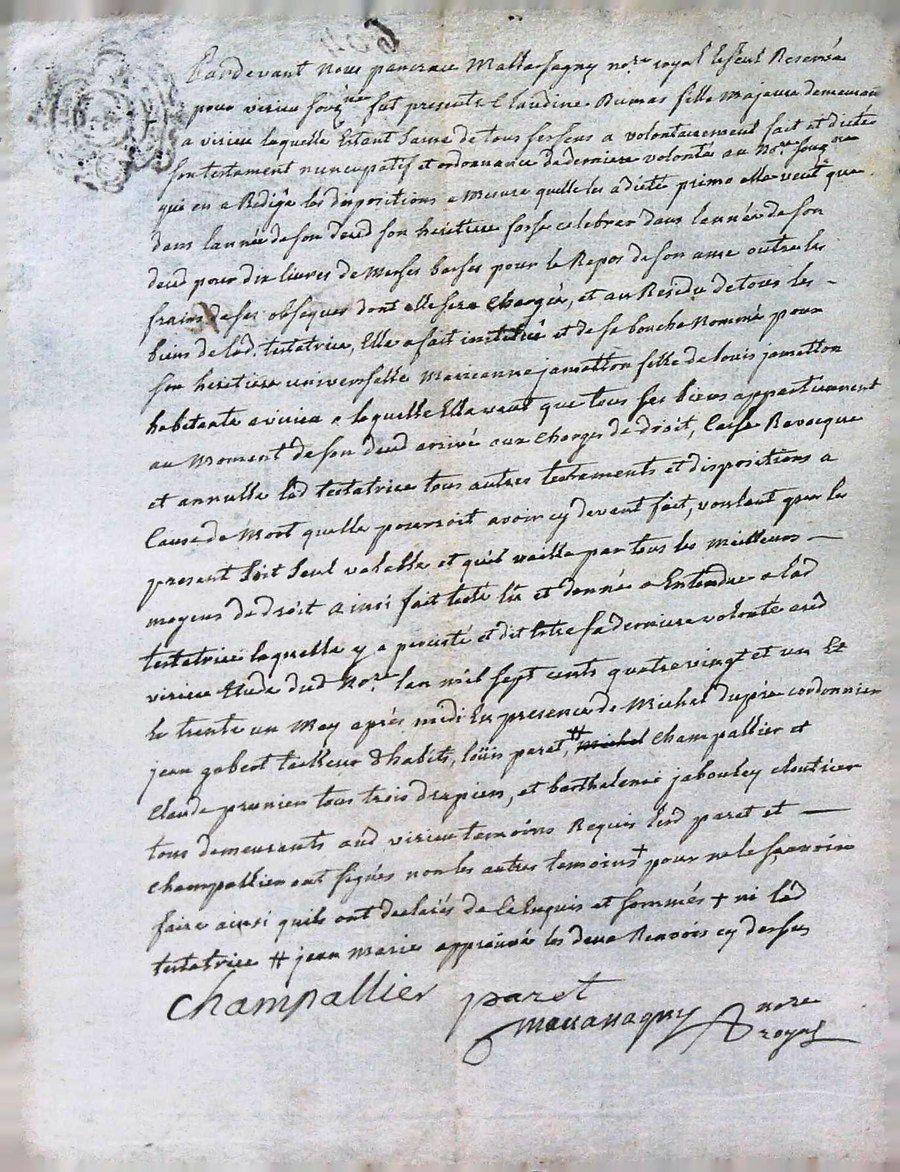 Pardevant Nous pancrace Mattasagny nore royal le seul Reservé
pour virieu souzne fut presente Claudine Dumas fille Majeure demeurant
a virieu laquelle Etant saine de tous ses sens a volontairement fait et dicté
son testament nuncupatif et ordonnance de derniere volonté au Nore souzne
qui en a Redigé les dispositions a Mesure quelle les a dicté primo elle veut que
dans lannée de son deud son heritiere fasse celebrer dans lannée de son
deud pour dix livres de Messes basses pour le Repos de son ame outre les
frais de ses obseques dont elle sera chargée, et au Residu de tous les -
biens de lad. testatrice, Elle a fait institué et de sa bouche Nommé pour
son heritiere universelle Marieanne jamatton fille de Louis jamatton
habitante a virieu a laquelle Elle veut que tous ses biens appartiennent
au Moment de son deud arrivé aux charges de droit, Casse Revocque
et annulle lad testatrice tous autres testaments et dispositions a
Cause de Mort quelle pourroit avoir cy devant fait, voulant que le
present soit seul valable et quil vaille par tous les Meilleurs -
moyens de droit ainsi fait testé lu et donné a Entendre a lad
testatrice laquelle y a persisté et dit Etre sa derniere volonté aud
virieu Etude dud Nore lan mil sept cents quatre vingt et un Et
Le trente un May après midi En presence de Michel dupré cordonnier
jean gobert tailleur d'habits, Loüis paret, # Michel Champallier et
Claude prunier tous trois drapiers, et barthelemi jabouley cloutier
tous demeurants aud virieu temoins Requis Lesd paret et -
champallier ont signés non les autres temoins + pour ne le sçavoir
faire ainsi quils ont declarés de ce Enquis et sommés + ni lad
testatrice # jean Marie approuvé les deux Renvois cy dessus
Champallier paret
nore
royal